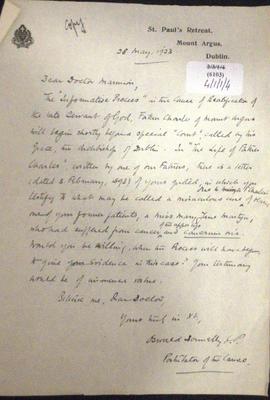 Copy
St. Paul's Retreat,
Mount Argus,
Dublin.
28 May, 1923
(6103)
4/1/1/4
Dear Doctor Marmion,
The "Informative Process" in the Cause of Beatification of
the late Servant of God, Father Charles of Mount Argus
will begin shortly before a special "Court" called by his
Grace, the Archbishop of Dublin. In "The Life of Father
Charles", written by one of our Fathers, there is a letter
(dated 2 February, 1893) of yours quoted, in which you
testify to what may be called a miraculous cure of
one of your former patients, a Miss Mary Jane Martyn,
who had suffered from cancer,
Would you be willing, when the Process will have begun,
to give your evidence in this case? Your testimony
would be of immense value.
Believe me, Dear Doctor,
Yours truly in Xt,
Donnelly C.P.
Postulator of the Cause.